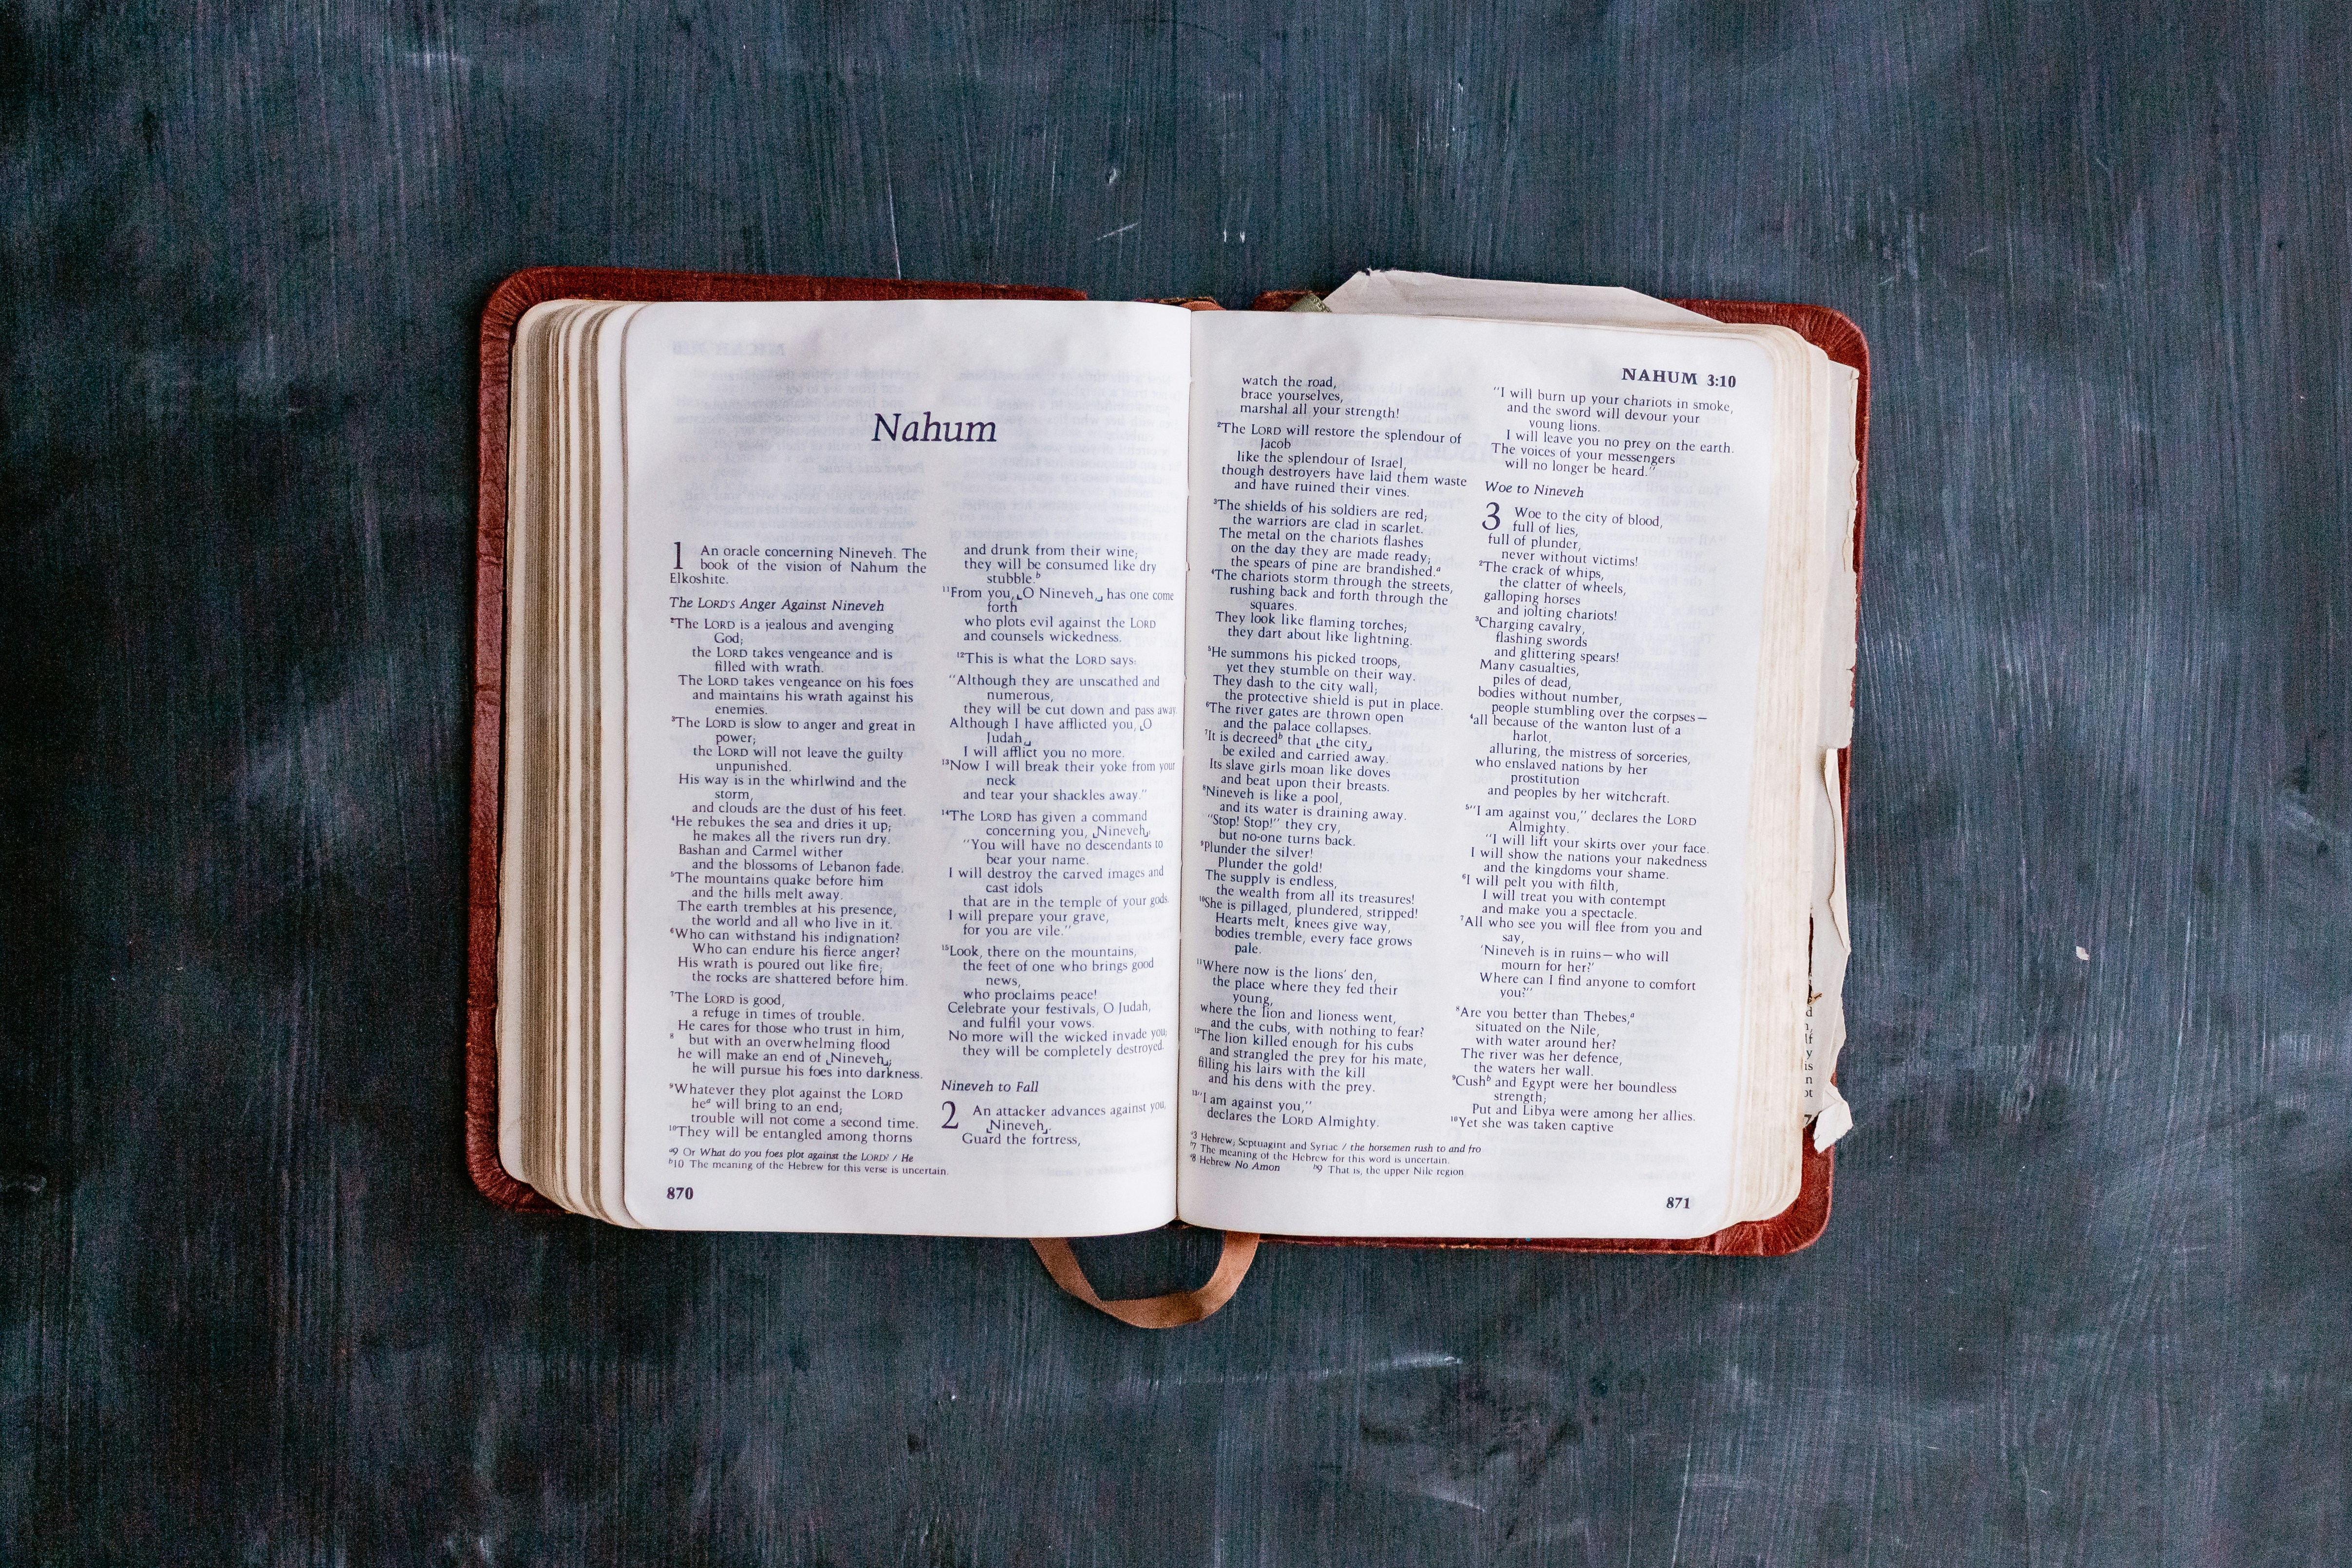 Nahum
1 An oracle concerning Nineveh. The
book of the vision of Nahum the
Elkoshite.
The LORD'S Anger Against Nineveh
²The LORD is a jealous and avenging
God;
the LORD takes vengeance and is
filled with wrath.
The LORD takes vengeance on his foes
and maintains his wrath against his
enemies.
³The LORD is slow to anger and great in
power;
the LORD will not leave the guilty
unpunished.
His way is in the whirlwind and the
storm,
and clouds are the dust of his feet.
⁴He rebukes the sea and dries it up;
he makes all the rivers run dry.
Bashan and Carmel wither
and the blossoms of Lebanon fade.
⁵The mountains quake before him
and the hills melt away.
The earth trembles at his presence,
the world and all who live in it.
⁶Who can withstand his indignation?
Who can endure his fierce anger?
His wrath is poured out like fire;
the rocks are shattered before him.
⁷The LORD is good,
a refuge in times of trouble.
He cares for those who trust in him,
⁸ but with an overwhelming flood
he will make an end of ⌞Nineveh⌟;
he will pursue his foes into darkness.
⁹Whatever they plot against the LORD
heᵃ will bring to an end;
trouble will not come a second time.
¹⁰They will be entangled among thorns
and drunk from their wine;
they will be consumed like dry
stubble.ᵇ
¹¹From you, ⌞O Nineveh,⌟ has one come
forth
who plots evil against the LORD
and counsels wickedness.
¹²This is what the LORD says:
"Although they are unscathed and
numerous,
they will be cut down and pass away.
Although I have afflicted you, ⌞O
Judah,⌟
I will afflict you no more.
¹³Now I will break their yoke from your
neck
and tear your shackles away."
¹⁴The LORD has given a command
concerning you, ⌞Nineveh⌟:
"You will have no descendants to
bear your name.
I will destroy the carved images and
cast idols
that are in the temple of your gods.
I will prepare your grave,
for you are vile."
¹⁵Look, there on the mountains,
the feet of one who brings good
news,
who proclaims peace!
Celebrate your festivals, O Judah,
and fulfil your vows.
No more will the wicked invade you;
they will be completely destroyed.
Nineveh to Fall
2 An attacker advances against you,
⌞Nineveh⌟.
Guard the fortress,
ᵃ9 Or What do you foes plot against the LORD? / He
ᵇ10 The meaning of the Hebrew for this verse is uncertain.
870
NAHUM 3:10
watch the road,
brace yourselves,
marshal all your strength!
²The LORD will restore the splendour of
Jacob
like the splendour of Israel,
though destroyers have laid them waste
and have ruined their vines.
³The shields of his soldiers are red;
the warriors are clad in scarlet.
The metal on the chariots flashes
on the day they are made ready;
the spears of pine are brandished.ᵃ
⁴The chariots storm through the streets,
rushing back and forth through the
squares.
They look like flaming torches;
they dart about like lightning.
⁵He summons his picked troops,
yet they stumble on their way.
They dash to the city wall;
the protective shield is put in place.
⁶The river gates are thrown open
and the palace collapses.
⁷It is decreedᵇ that ⌞the city⌟
be exiled and carried away.
Its slave girls moan like doves
and beat upon their breasts.
⁸Nineveh is like a pool,
and its water is draining away.
"Stop! Stop!" they cry,
but no-one turns back.
⁹Plunder the silver!
Plunder the gold!
The supply is endless,
the wealth from all its treasures!
¹⁰She is pillaged, plundered, stripped!
Hearts melt, knees give way,
bodies tremble, every face grows
pale.
¹¹Where now is the lions' den,
the place where they fed their
young,
where the lion and lioness went,
and the cubs, with nothing to fear?
¹²The lion killed enough for his cubs
and strangled the prey for his mate,
filling his lairs with the kill
and his dens with the prey.
¹³"I am against you,"
declares the LORD Almighty.
"I will burn up your chariots in smoke,
and the sword will devour your
young lions.
I will leave you no prey on the earth.
The voices of your messengers
will no longer be heard."
Woe to Nineveh
3 Woe to the city of blood,
full of lies,
full of plunder,
never without victims!
²The crack of whips,
the clatter of wheels,
galloping horses
and jolting chariots!
³Charging cavalry,
flashing swords
and glittering spears!
Many casualties,
piles of dead,
bodies without number,
people stumbling over the corpses—
⁴all because of the wanton lust of a
harlot,
alluring, the mistress of sorceries,
who enslaved nations by her
prostitution
and peoples by her witchcraft.
⁵"I am against you," declares the LORD
Almighty.
"I will lift your skirts over your face.
I will show the nations your nakedness
and the kingdoms your shame.
⁶I will pelt you with filth,
I will treat you with contempt
and make you a spectacle.
⁷All who see you will flee from you and
say,
'Nineveh is in ruins—who will
mourn for her?'
Where can I find anyone to comfort
you?"
⁸Are you better than Thebes,ᵃ
situated on the Nile,
with water around her?
The river was her defence,
the waters her wall.
⁹Cushᵇ and Egypt were her boundless
strength;
Put and Libya were among her allies.
¹⁰Yet she was taken captive
ᵃ3 Hebrew; Septuagint and Syriac / the horsemen rush to and fro
ᵇ7 The meaning of the Hebrew for this word is uncertain.
ᵃ8 Hebrew No Amon ᵇ9 That is, the upper Nile region
871